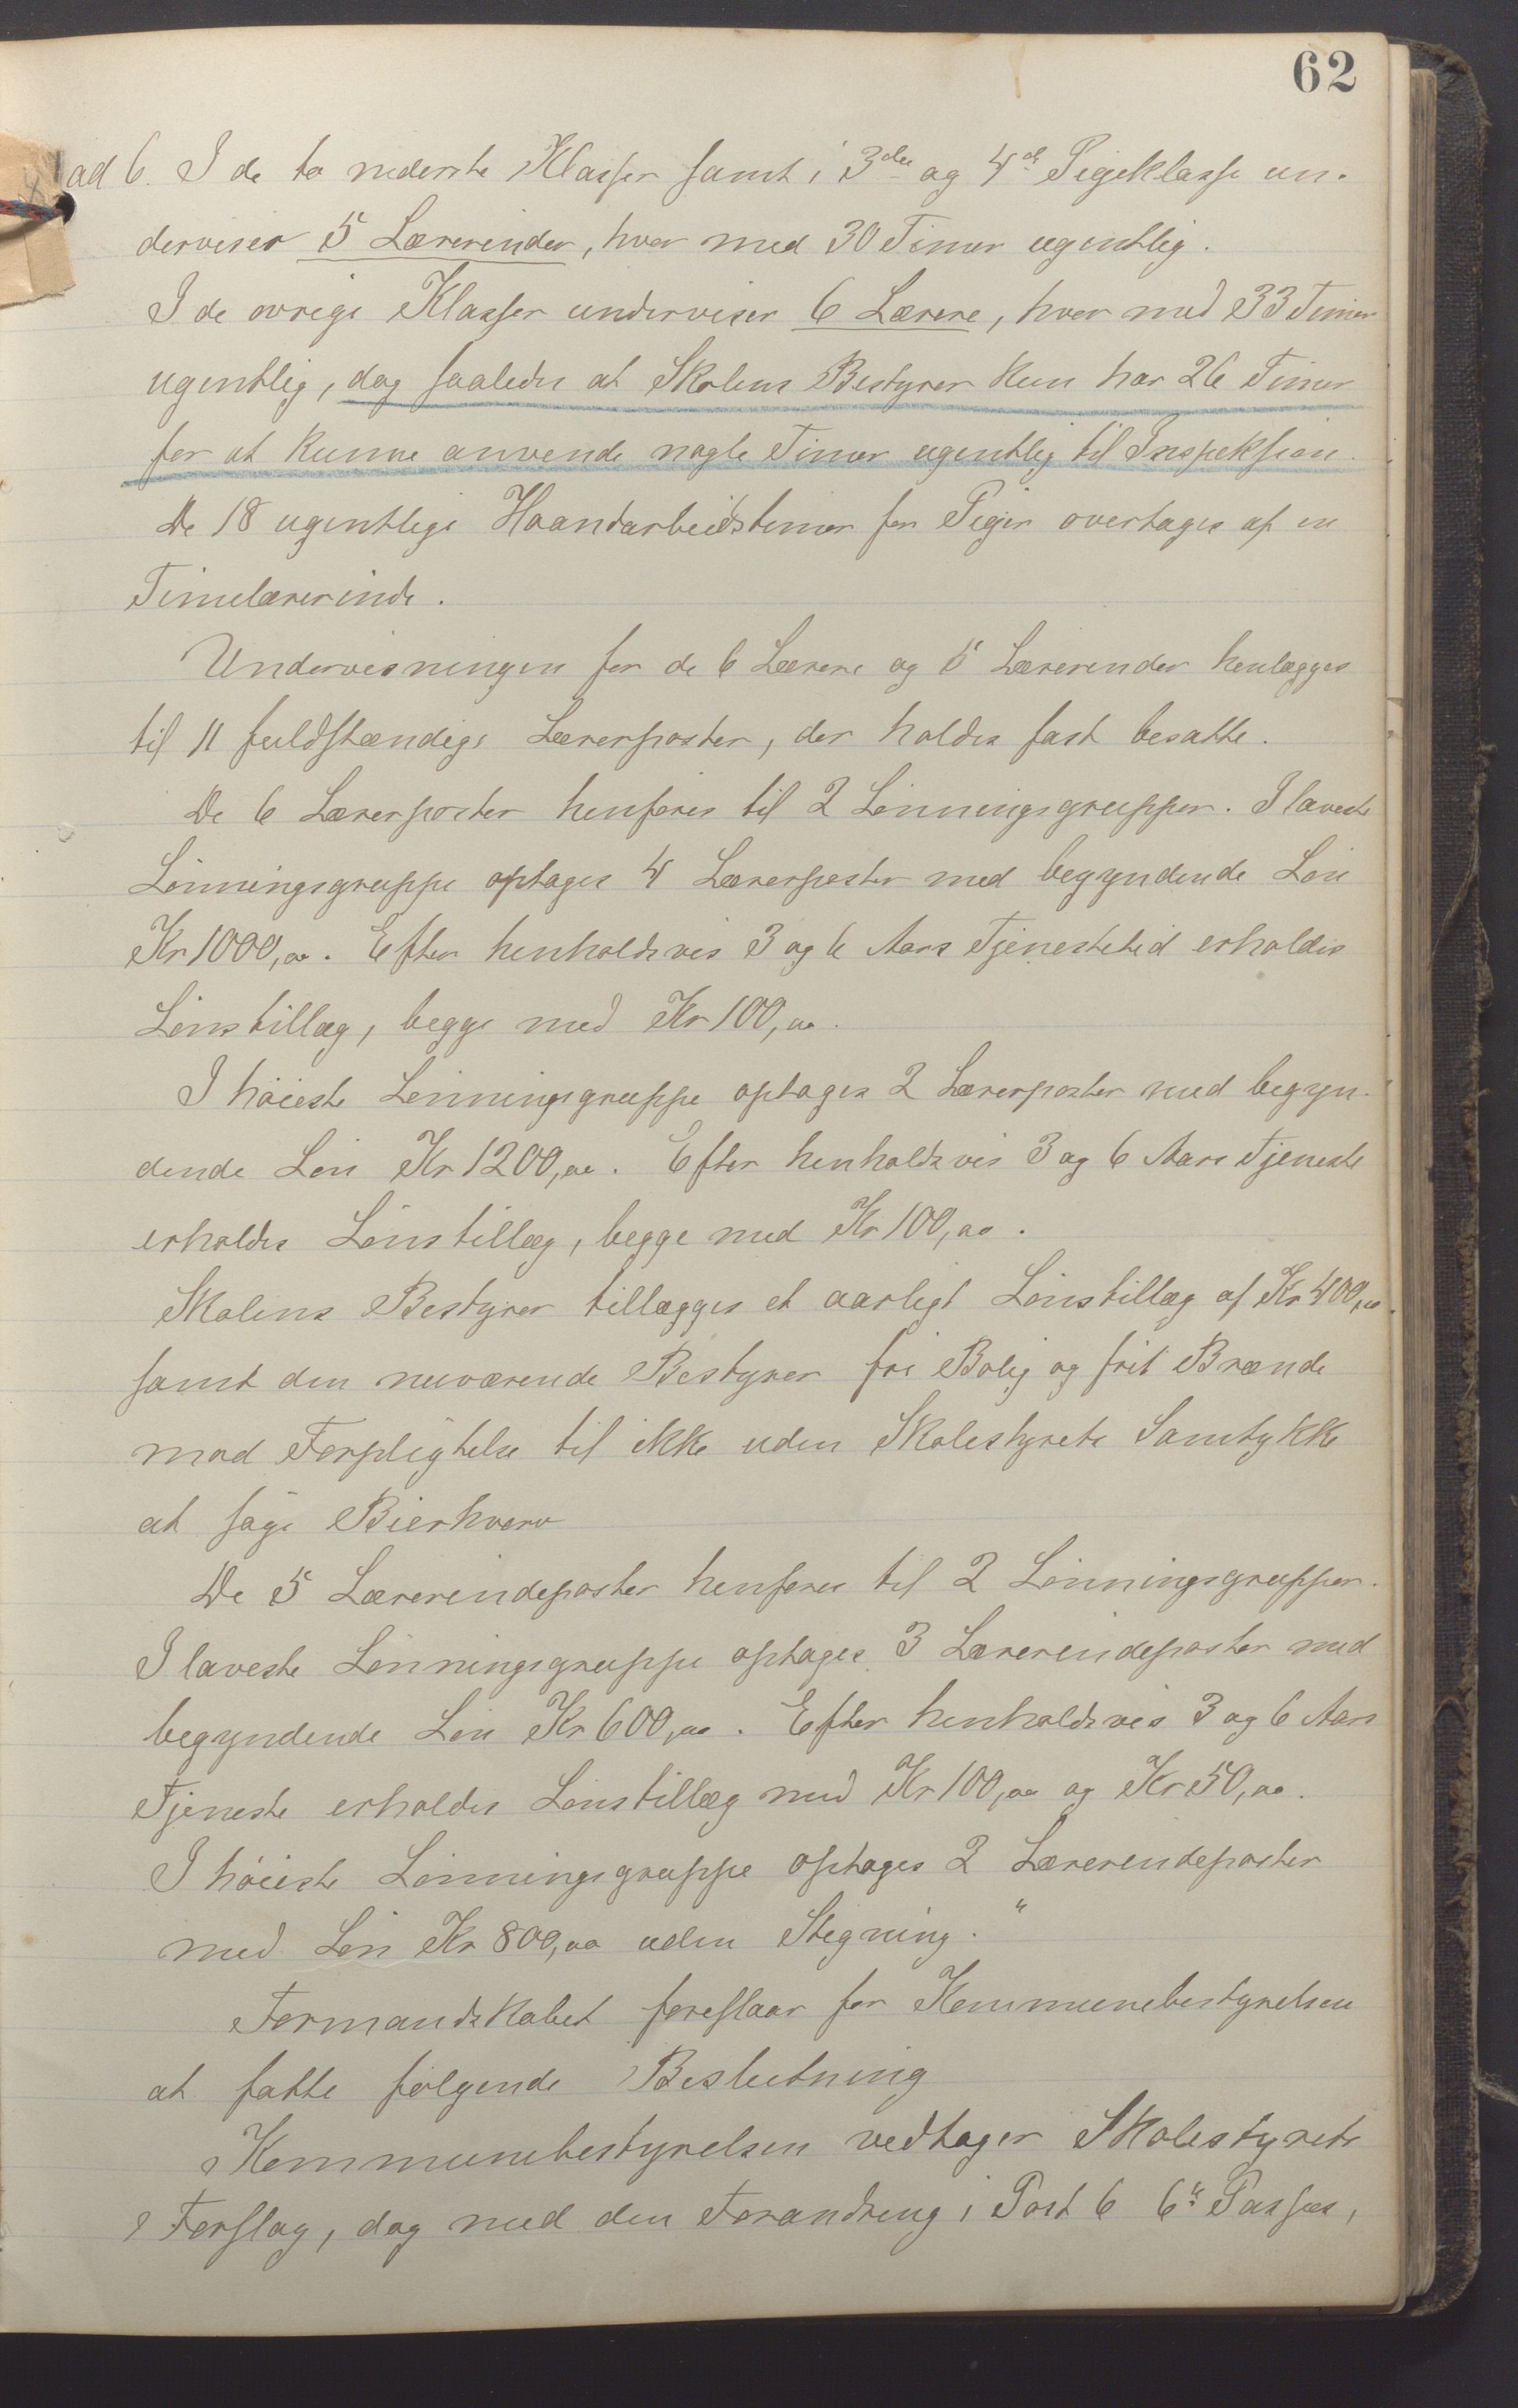 62
ad 6. I de to nederste Klasser samt i 3die og 4de Pigeklasse un-
derviser 5 Lærerinder, hver med 30 Timer ugentlig.
I de øvrige Klasser underviser 6 Lærere, hver med 33 Timer
ugentlig, dog saaledes at Skolens Bestyrer kun har 26 Timer
for at kunne anvende nogle Timer ugentlig til Inspeksion.
De 18 ugentlige Haandarbeidstimer for Piger overtages af en
Timelærerinde.
Undervisningen for de 6 Lærere og 5 Lærerinder henlægges
til 11 fuldstændige Lærerposter, der holdes fast besatte.
De 6 Lærerposter henføres til 2 Lønningsgrupper. I laveste
Lønningsgruppe optages 4 Lærerposter med begyndende Løn
Kr 1000,00. Efter henholdsvis 3 og 6 Aars Tjenestetid erholdes
Lønstillæg, begge med Kr 100,00.
I høieste Lønningsgruppe optages 2 Lærerposter med begyn-
dende Løn Kr 1200,00. Efter henholdsvis 3 og 6 Aars Tjeneste
erholdes Lønstillæg, begge med Kr 100,00.
Skolens Bestyrer tillægges et aarligt Lønstillæg af Kr 400,00
samt den nuværende Bestyrer fri Bolig og frit Brænde
mod Forpligtelse til ikke uden Skolestyrets Samtykke
at søge Bierhverv
De 5 Lærerindeposter henføres til 2 Lønningsgrupper.
I laveste Lønningsgruppe optages 3 Lærerindeposter med
begyndende Løn Kr 600,00. Efter henholdsvis 3 og 6 Aars
Tjeneste erholdes Lønstillæg med Kr 100,00 og Kr 50,00.
I høieste Lønningsgruppe optages 2 Lærerindeposter
med Løn Kr 800,00 uden Stegning."
Formandskabet foreslaar for Kommunebestyrelsen
at fatte følgende Beslutning
Kommunebestyrelsen vedtager Skolestyrets
Forslag, dog med den Forandring i Post 6 6te Passus,